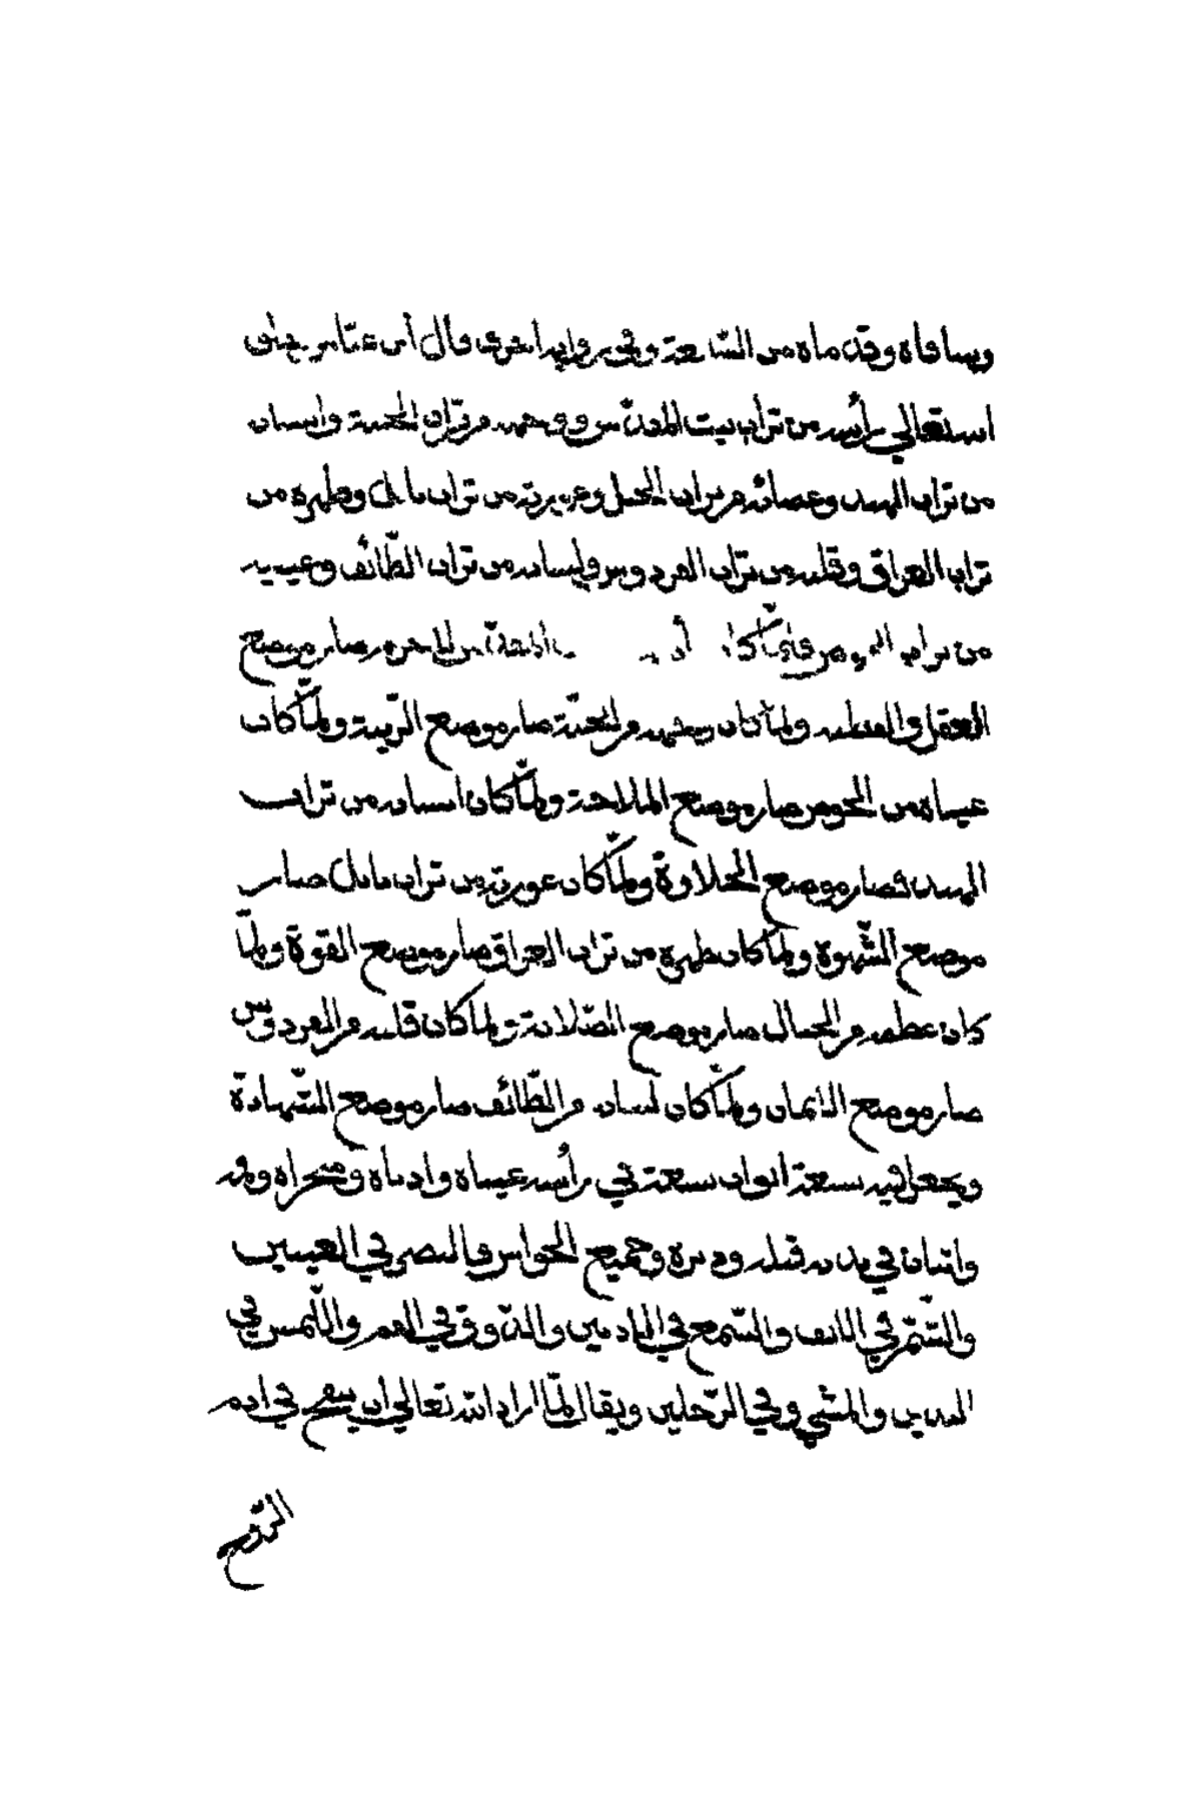 وساقاه وقدماه من السابعة وفي رواية اخرى قال ابن عباس خلق
الله تعالى رأسه من تراب بيت المقدس ووجهه من تراب الجنة واسنانه
من تراب الهند وعظامه من تراب الجبل وعورته من تراب بابل وظهره من
تراب العراق وقلبه من تراب الفردوس ولسانه من تراب الطائف وعينيه
من تراب الحوض فلما كان رأسه من صار موضع
العقل والفطنة ولما كان وجهه من الجنة صار موضع الزينة ولما كان
عيناه من الحوض صار موضع الملاحة ولما كان اسنانه من تراب
الهند فصار موضع الحلاوة ولما كان عورته من تراب بابل صار
موضع الشهوة ولما كان ظهره من تراب العراق صار موضع القوة ولما
كان عظمه من الجبال صار موضع الصلابة ولما كان قلبه من الفردوس
صار موضع الايمان ولما كان لسانه من الطائف صار موضع الشهادة
ويجعل فيه تسعة ابواب سبعة في رأسه عيناه واذناه ومنخراه وفمه
واثنان في بدنه قبله ودبره وجميع الحواس فالبصر في العينين
والشم في الانف والسمع في الاذنين والذوق في الفم واللمس في
اليدين والمشي في الرجلين ويقال لما اراد الله تعالى ان ينفخ في ادم
الروح